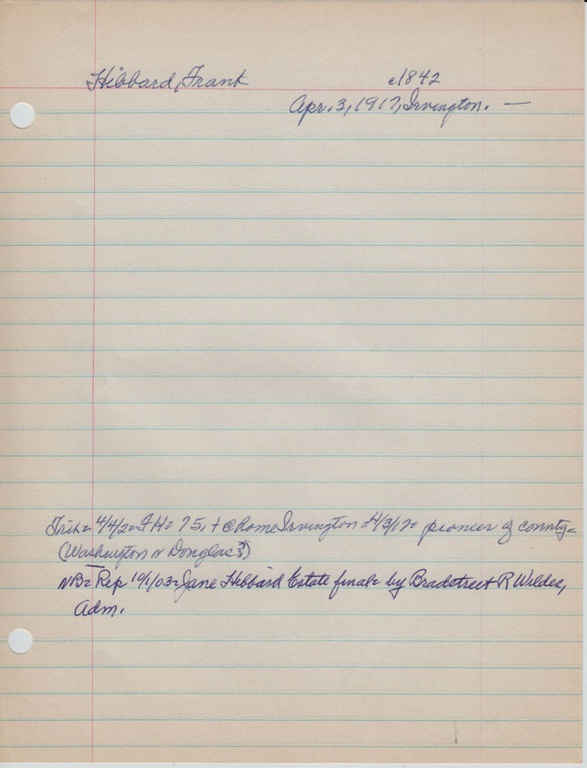 Hibbard, Frank c1842
Apr. 3, 1917, Irvington. —
Trib= 4/4/2= FH= 75, + @ home Irvington =4/3/17= pioneer of county=
(Washington or Douglas?)
NB= Rep 10/1/03= Jane Hibbard Estate final= by Bradstreet R Wildee,
Adm.